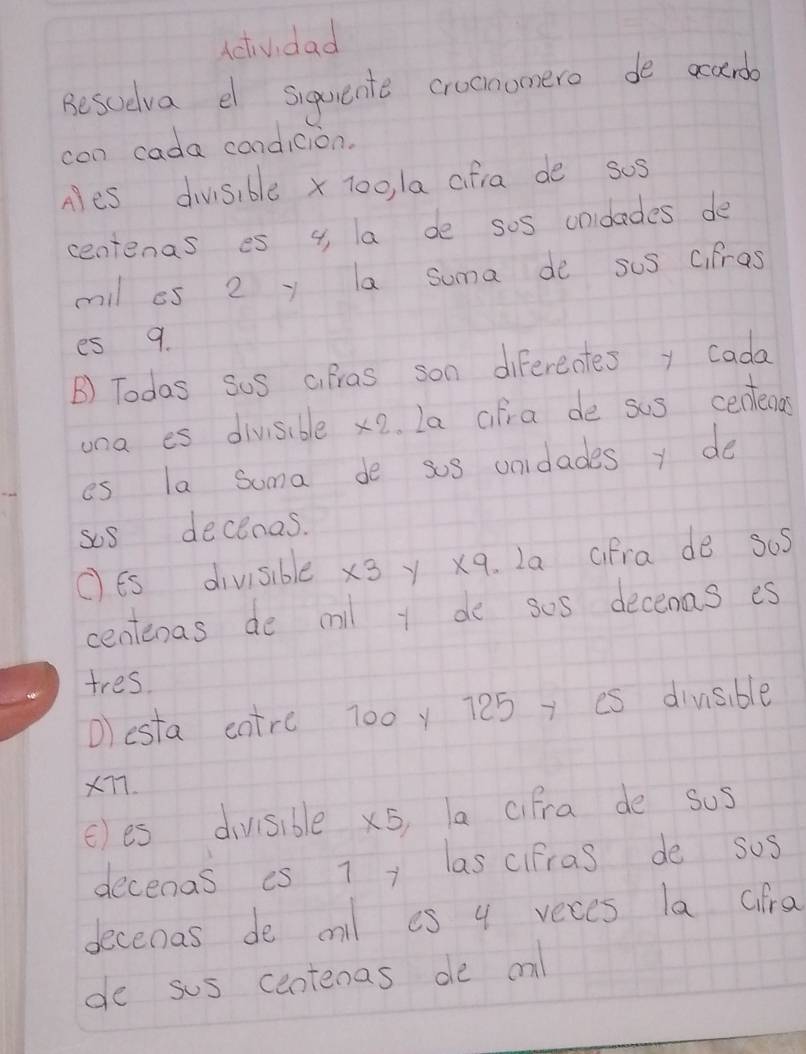 Actividad
Resuelva el siguiente crucinumero de acuerdo
con cada condición.
A) es divisible x 100, la cifra de sus
centenas es 4, la de sus unidades de
mil es 2 y la suma de sus cifras
es 9.
B) Todas sus cifras son diferentes y cada
una es divisible x2. La cifra de sus centenas
es la suma de sus unidades y de
sus decenas.
C) Es divisible x3 y x9. La cifra de sus
centenas de mil y de sus decenas es
tres.
D) esta entre 100 y 125 y es divisible
x11.
E) es divisible x5, la cifra de sus
decenas es 1 y las cifras de sus
decenas de mil es 4 veces la cifra
de sus centenas de mil